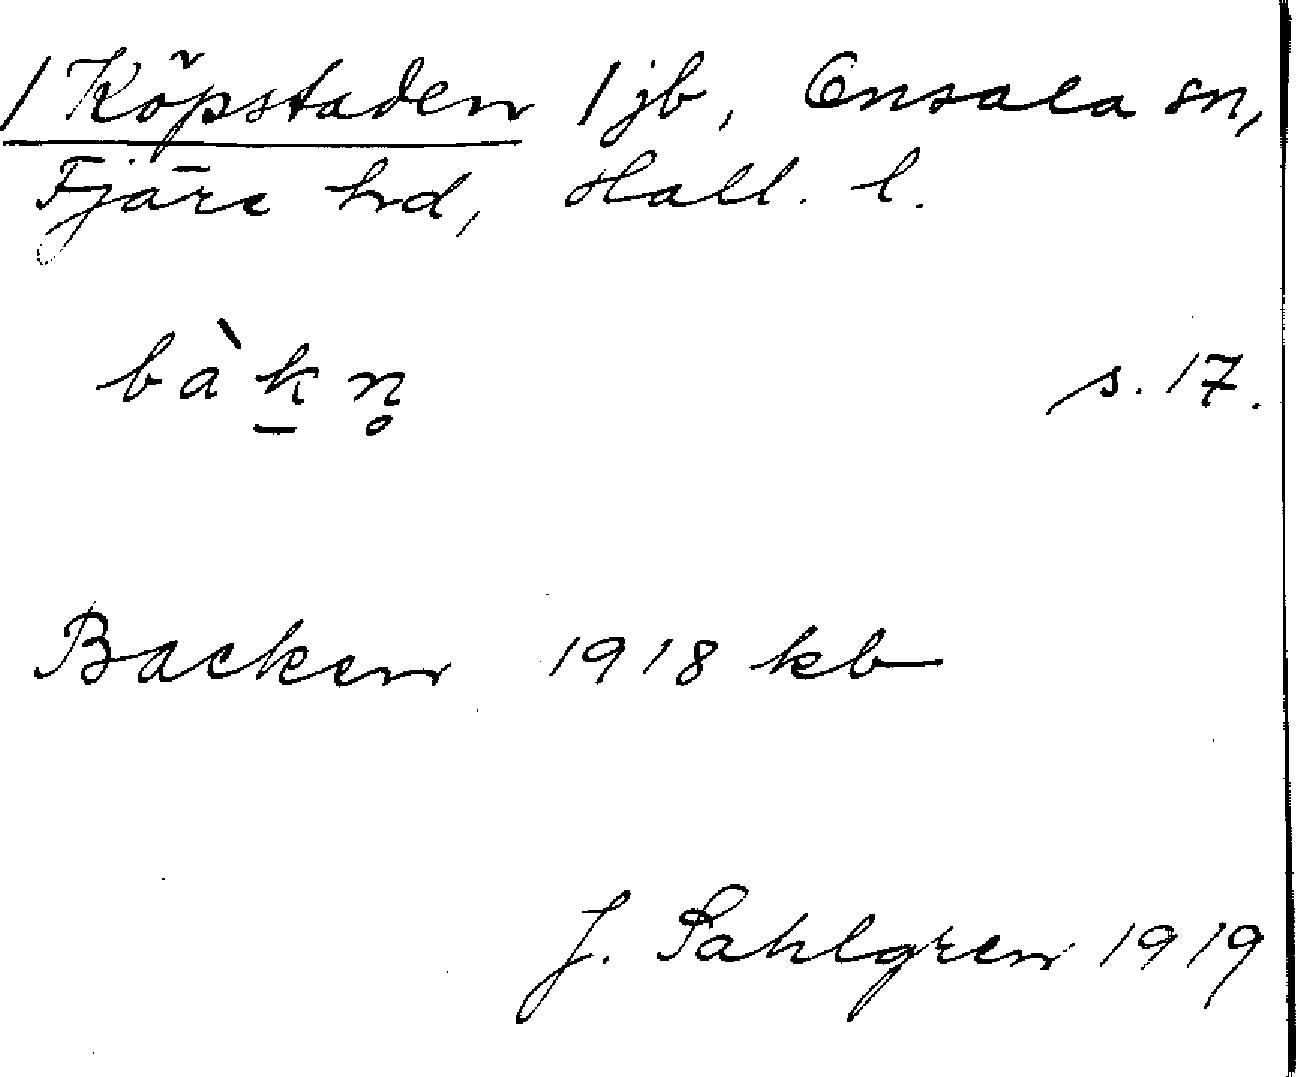 / Köpstaden 1 jb, Onsala sn,
Fjäre hd, Hall. l.
bàk̲n̥ s. 17.
Backen 1918 kb
J. Sahlgren 1919